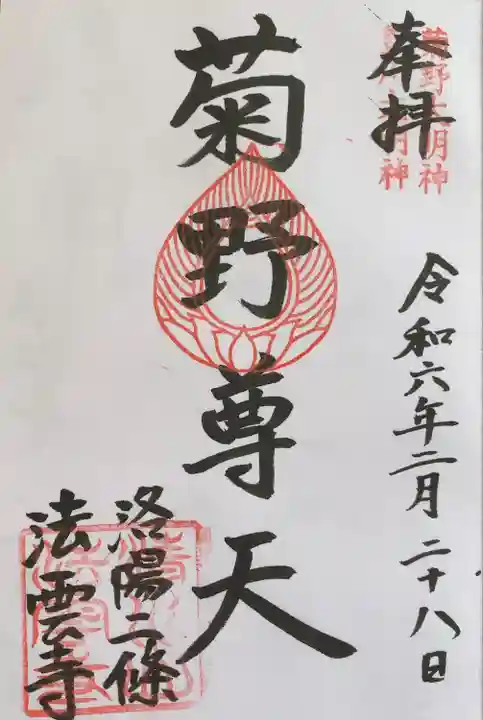 奉拝
菊野大明神
令和六年二月二十八日
菊野尊天
洛陽二條
法雲寺